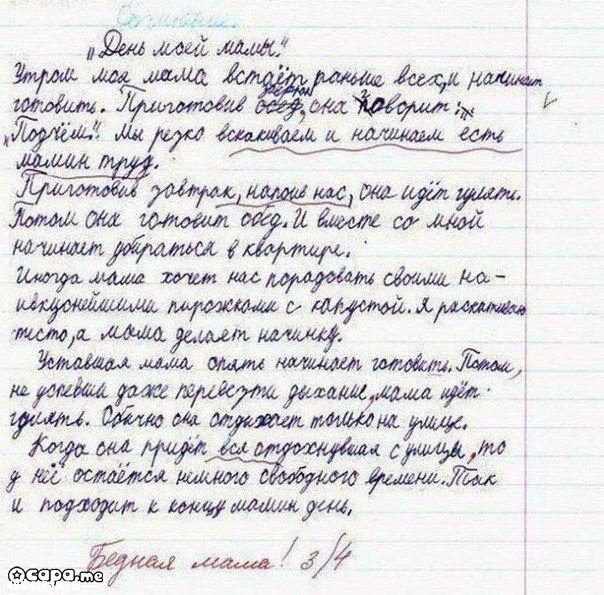 Сочинение.
„День моей мамы."
Утром моя мама встаёт раньше всех, и начинает
готовить. Приготовив завтрак, она говорит:
„Подъём!" Мы резко вскакиваем и начинаем есть
мамин труд.
Приготовив завтрак, напоив нас, она идёт гулять.
Потом она готовит обед. И вместе со мной
начинает убираться в квартире.
Иногда мама хочет нас порадовать своими на-
ивкуснейшими пирожками с капустой. Я раскатываю
тесто, а мама делает начинку.
Уставшая мама опять начинает готовить. Потом,
не успевши даже перевезти дыхание, мама идёт
гулять. Обычно она отдыхает только на улице.
Когда она придёт вся отдохнувшая с улицы, то
у неё остаётся немного свободного времени. Так
и подходит к концу мамин день.
Бедная мама! 3/4
Ocapa.me